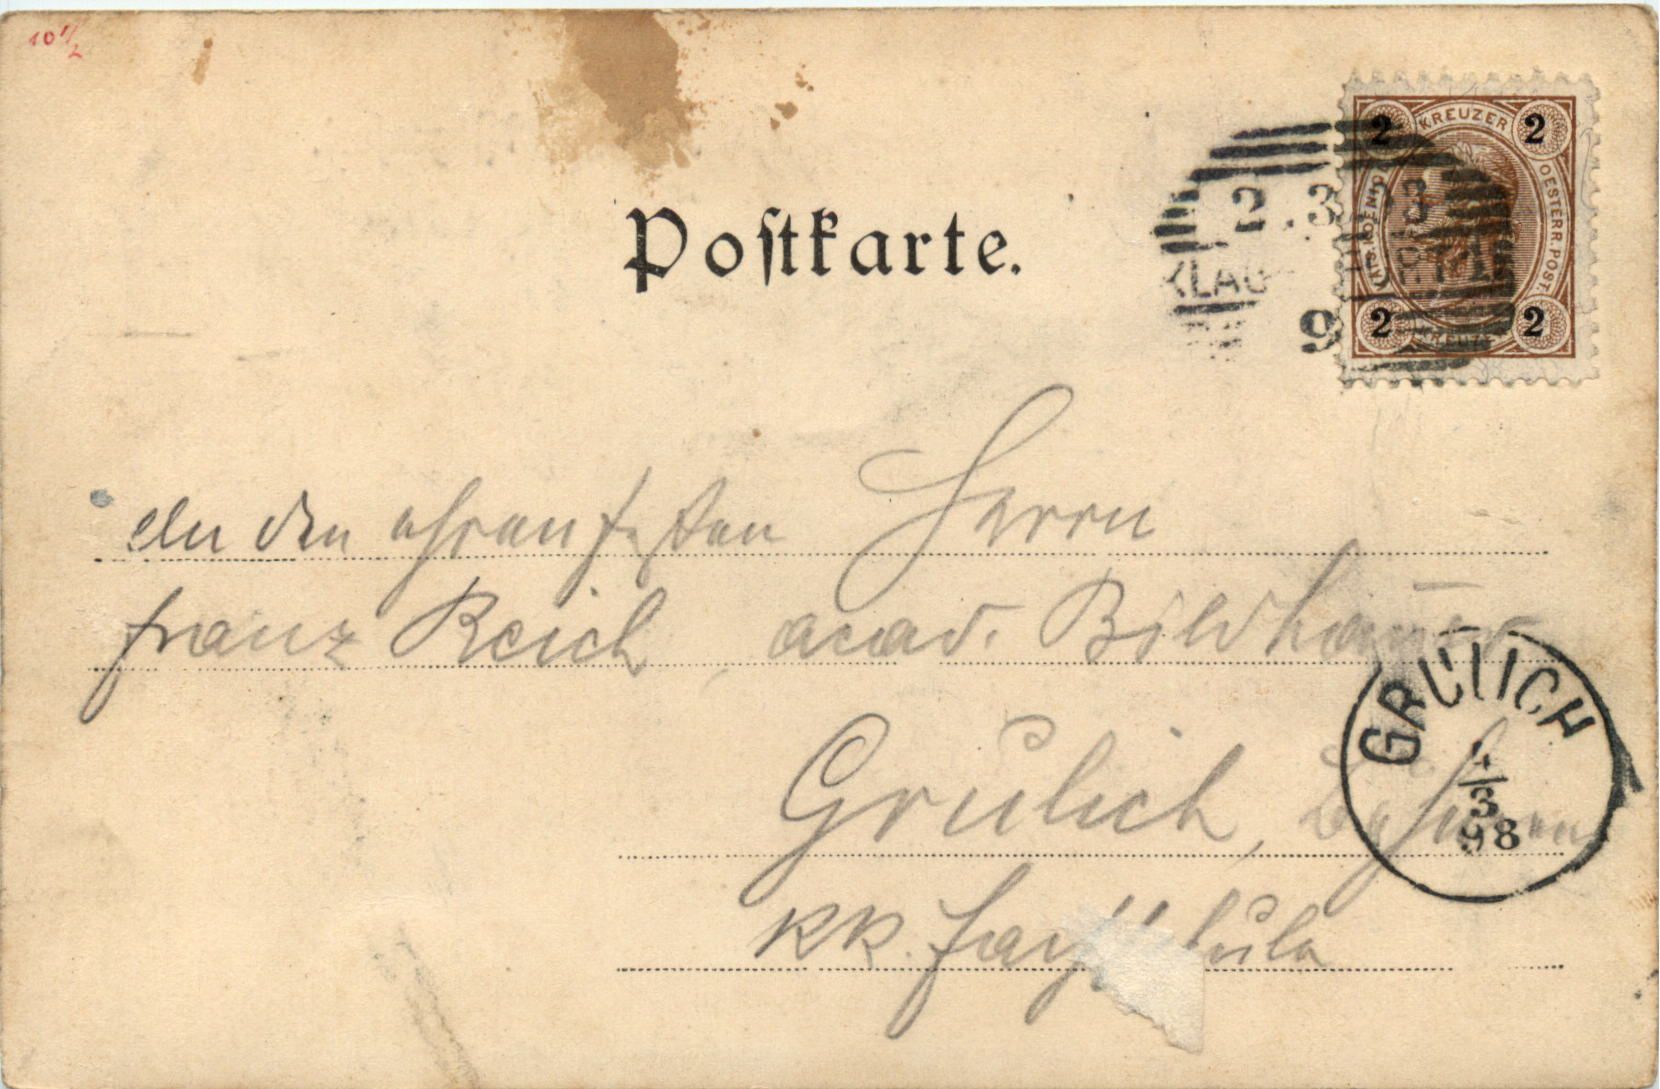 10 1/2
Postkarte.
2 KREUZER 2
KAIS. KOENIGL. OESTERR. POST.
2 KREUZER 2
2.3.98
KLAG
9
An den ehrenfesten Herrn
Franz Reich, acad. Bildhauer
Grulich, Böhmen
KK. Fachschule
GRULICH
/3
98